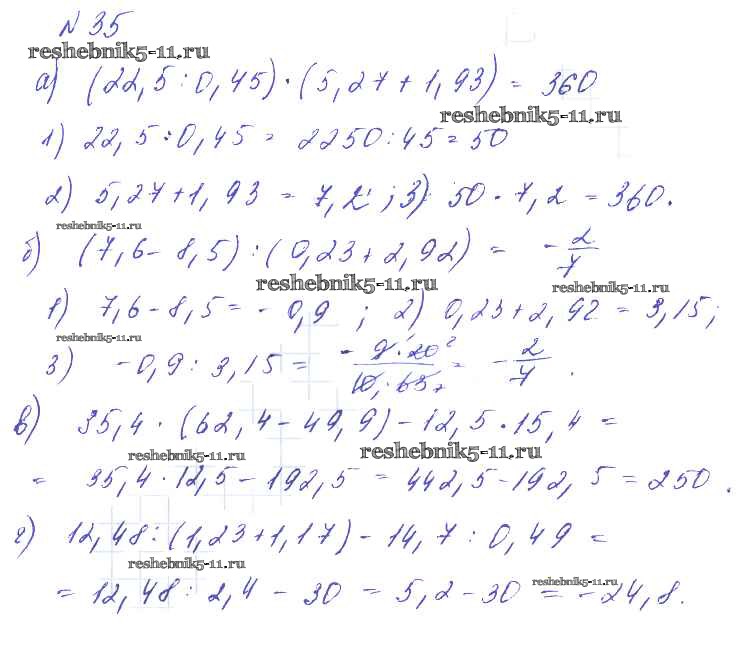 № 35
reshebnik5-11.ru
а) (22,5 : 0,45) · (5,27 + 1,93) = 360
reshebnik5-11.ru
1) 22,5 : 0,45 = 2250 : 45 = 50
2) 5,27 + 1,93 = 7,2 ; 3) 50 · 7,2 = 360.
reshebnik5-11.ru
б) (7,6 - 8,5) : (0,23 + 2,92) = - 2/7
reshebnik5-11.ru reshebnik5-11.ru
1) 7,6 - 8,5 = - 0,9 ; 2) 0,23 + 2,92 = 3,15;
reshebnik5-11.ru
3) - 0,9 : 3,15 = - 2/7 .
в) 35,4 · (62,4 - 49,9) - 12,5 · 15,4 =
reshebnik5-11.ru reshebnik5-11.ru
= 35,4 · 12,5 - 192,5 = 442,5 - 192,5 = 250 .
г) 12,48 : (1,23 + 1,17) - 14,7 : 0,49 =
reshebnik5-11.ru reshebnik5-11.ru
= 12,48 : 2,4 - 30 = 5,2 - 30 = - 24,8.